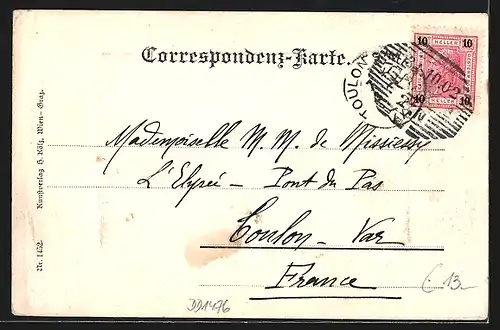 Correspondenz-Karte.
10 HELLER 10
10 HELLER 10
TOULON
Mademoiselle M. M. de Missiessy
L'Elysée - Pont du Pas
Toulon - Var
France
Kunstverlag H. Kölz, Wien-Graz.
Nr. 1452.
DD1476
€ 13.-